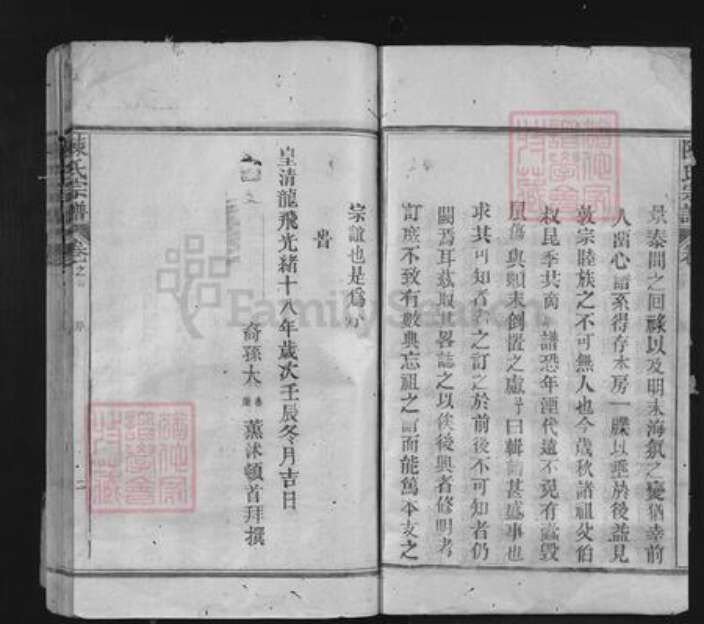 景泰間之回祿以及明末海氛之變猶幸前
人苦心譜系得存本房一牒以垂於後益見
敦宗睦族之不可無人也今歲秋諸祖父伯
叔昆季共商 譜恐年湮代遠不免有蠹毀
屈傷與顛末倒置之處 曰輯譜甚盛事也
求其可知者 之訂之於前後不可知者仍
闕焉耳茲取其畧誌之以俟後興者修明考
訂庶不致有數典忘祖之誚而能篤本支之
宗誼也是爲
旹
皇清龍飛光緒十八年歲次壬辰冬月吉日
裔孫太 薰沐頓首拜撰
陳氏宗譜 卷之
陳氏宗譜 卷
FamilySearch